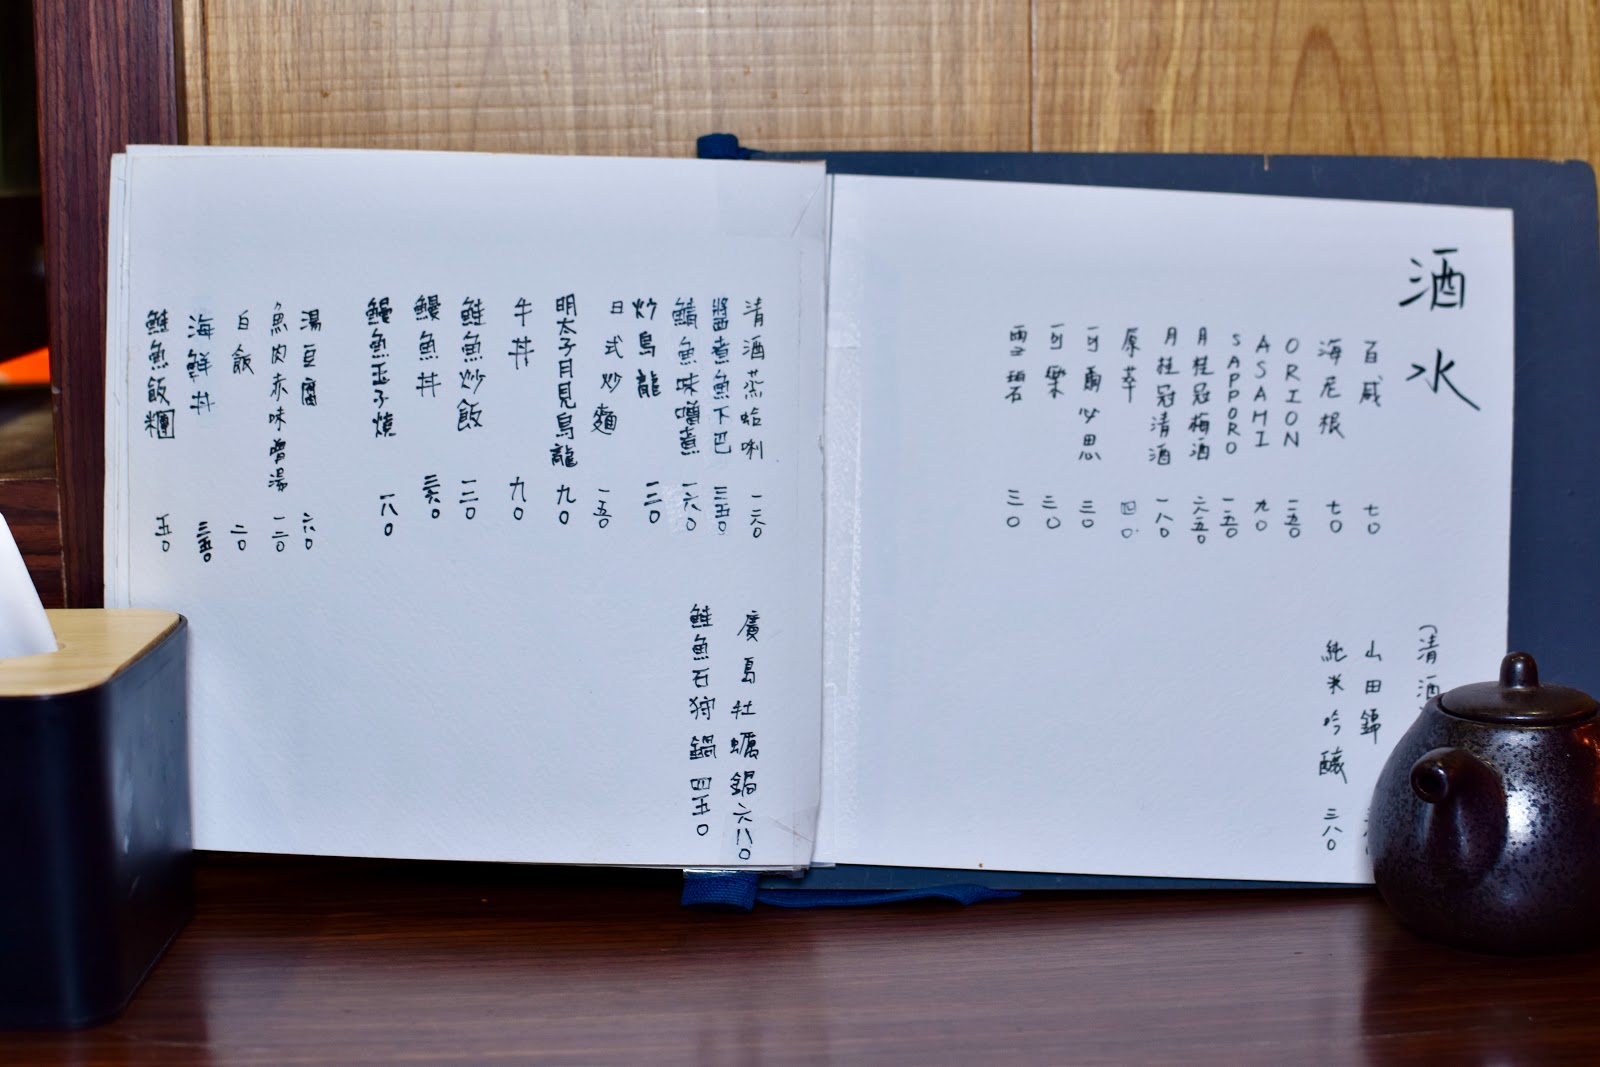 酒水
百威 七0
海尼根 七0
ORION 一五0
ASAHI 九0
SAPPORO 一五0
月桂冠梅酒 六五0
月桂冠清酒 一八0
原萃 四0
可爾必思 三0
可樂 三0
雪碧 三0
(清酒
山田錦
純米吟釀 三八0
清酒蒸蛤唎 一六0
醬煮魚下巴 三五0
鯖魚味噌煮 一六0
炒烏龍 一三0
日式炒麵 一五0
明太子月見烏龍 九0
牛丼 九0
鮭魚炒飯 一二0
鰻魚丼 三六0
鰻魚玉子燒 一八0
湯豆腐 六0
魚肉赤味噌湯 一二0
白飯 二0
海鮮丼 三五0
鮭魚飯糰 五0
廣島牡蠣鍋 六八0
鮭魚石狩鍋 四五0